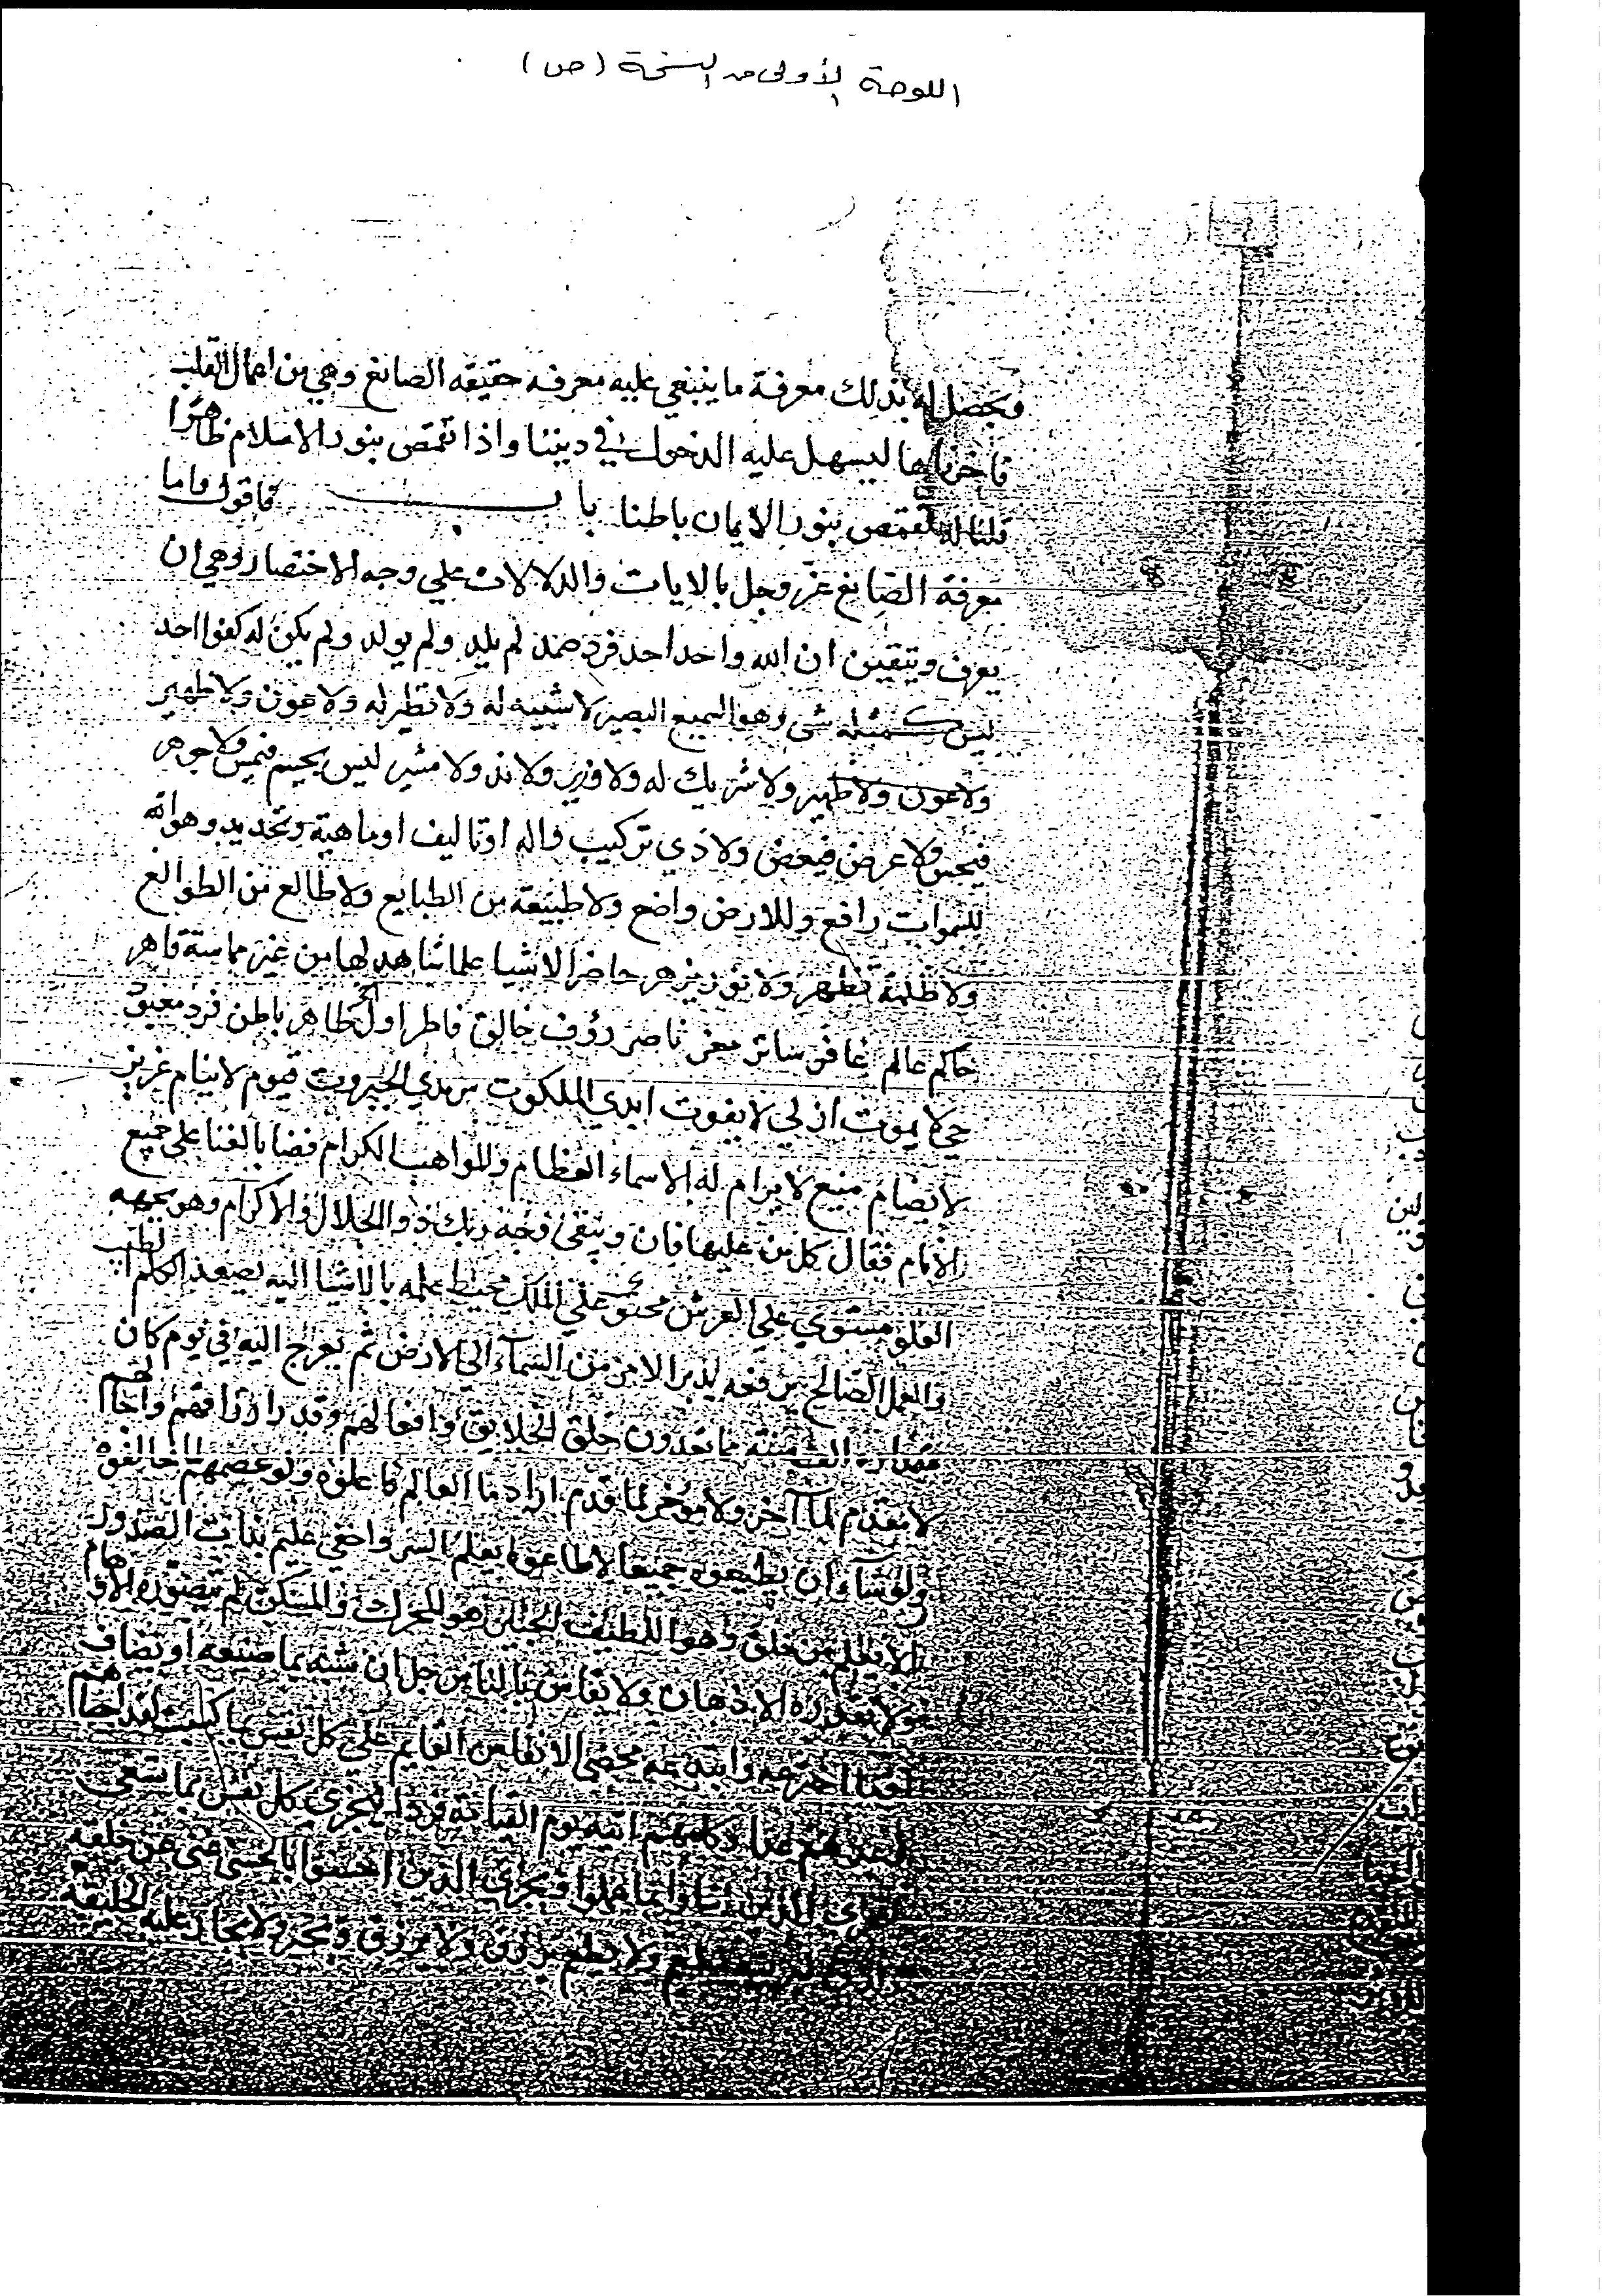 اللوحة الأولى من النسخة (ص)
ويحصل له بذلك معرفة ما ينبغي عليه معرفه حقيقه الصانع وهي من اعمال القلب
فاخرناها ليسهل عليه الدخول في ديننا واذا تقمص بنور الاسلام ظاهرا
قلنا له تقمص بنور الايمان باطنا باب فاقول واما
معرفة الصانع عز وجل بالايات والدلالات علي وجه الاختصار وهي ان
يعرف ويتيقين ان الله واحد احد فرد صمد لم يلد ولم يولد ولم يكن له كفوا احد
ليس كمثله شي وهو السميع البصير لا شبيه له ولا نظير له ولا عون ولا ظهير
ولا عون ولا ظهير ولا شريك له ولا وزير ولا ند ولا مشير ليس بجسم فيمس ولا جوهر
فيحس ولا عرض فيعض ولا ذي تركيب واله او تاليف او ماهية وتحديد وهو الله
للسموات رافع وللارض واضع ولا طبيعة من الطبايع ولا طالع من الطوالع
ولا ظلمة تظهر ولا نور يزهر حاضر الاشيا علما شاهد لها من غير مماسة قاهر
حاكم عالم غافر ساتر معز ناصر رؤف خالق فاطر اول اخر ظاهر باطن فرد معبود
حي لا يموت ازلي لا يفوت ابدي الملكوت سرمدي الجبروت قيوم لا ينام عزيز
لا يضام منيع لا يرام له الاسماء العظام والمواهب الكرام قضا بالفنا علي جميع
الانام فقال كل من عليها فان ويبقى وجه ربك ذو الجلال والاكرام وهو بجهه
العلو مستوي علي العرش محتو علي الملك محيط علمه بالاشيا اليه يصعد الكلم الطيب
والعمل الصالح يرفعه يدبر الامر من السماء الي الارض ثم يعرج اليه في يوم كان
مقداره الف سنة مما تعدون خلق الخلايق وافعالهم وقدر ارزاقهم واجالهم
لا مقدم لما آخر ولا موخر لما قدم اراد ما العالم فاعلوه ولو عصمهم لما خالفوه
ولو شاء ان يطيعوه جميعا لاطاعوه يعلم السر واخفي عليم بذات الصدور
الا يعلم من خلق وهو اللطيف الخبير هو المحرك والمسكن لم تتصوره الاوهام
ولا تقدره الاذهان ولا يقاس بالناس جل ان يشبه بما صنعه او يضاف
اخترعه وابتدعه محصي الانفاس القايم علي كل نفس بما كسبت لقد احصاهم
وعدهم عدا وكلهم اتيه يوم القيامة فردا لتجزي كل نفس بما تسعي
ليجزي الذين اساوا بما عملوا ويجزي الذين احسنوا بالحسني غني عن خلقه
ولا يطعم يرزق ولا يرزق ويجير ولا يجار عليه الخليقة